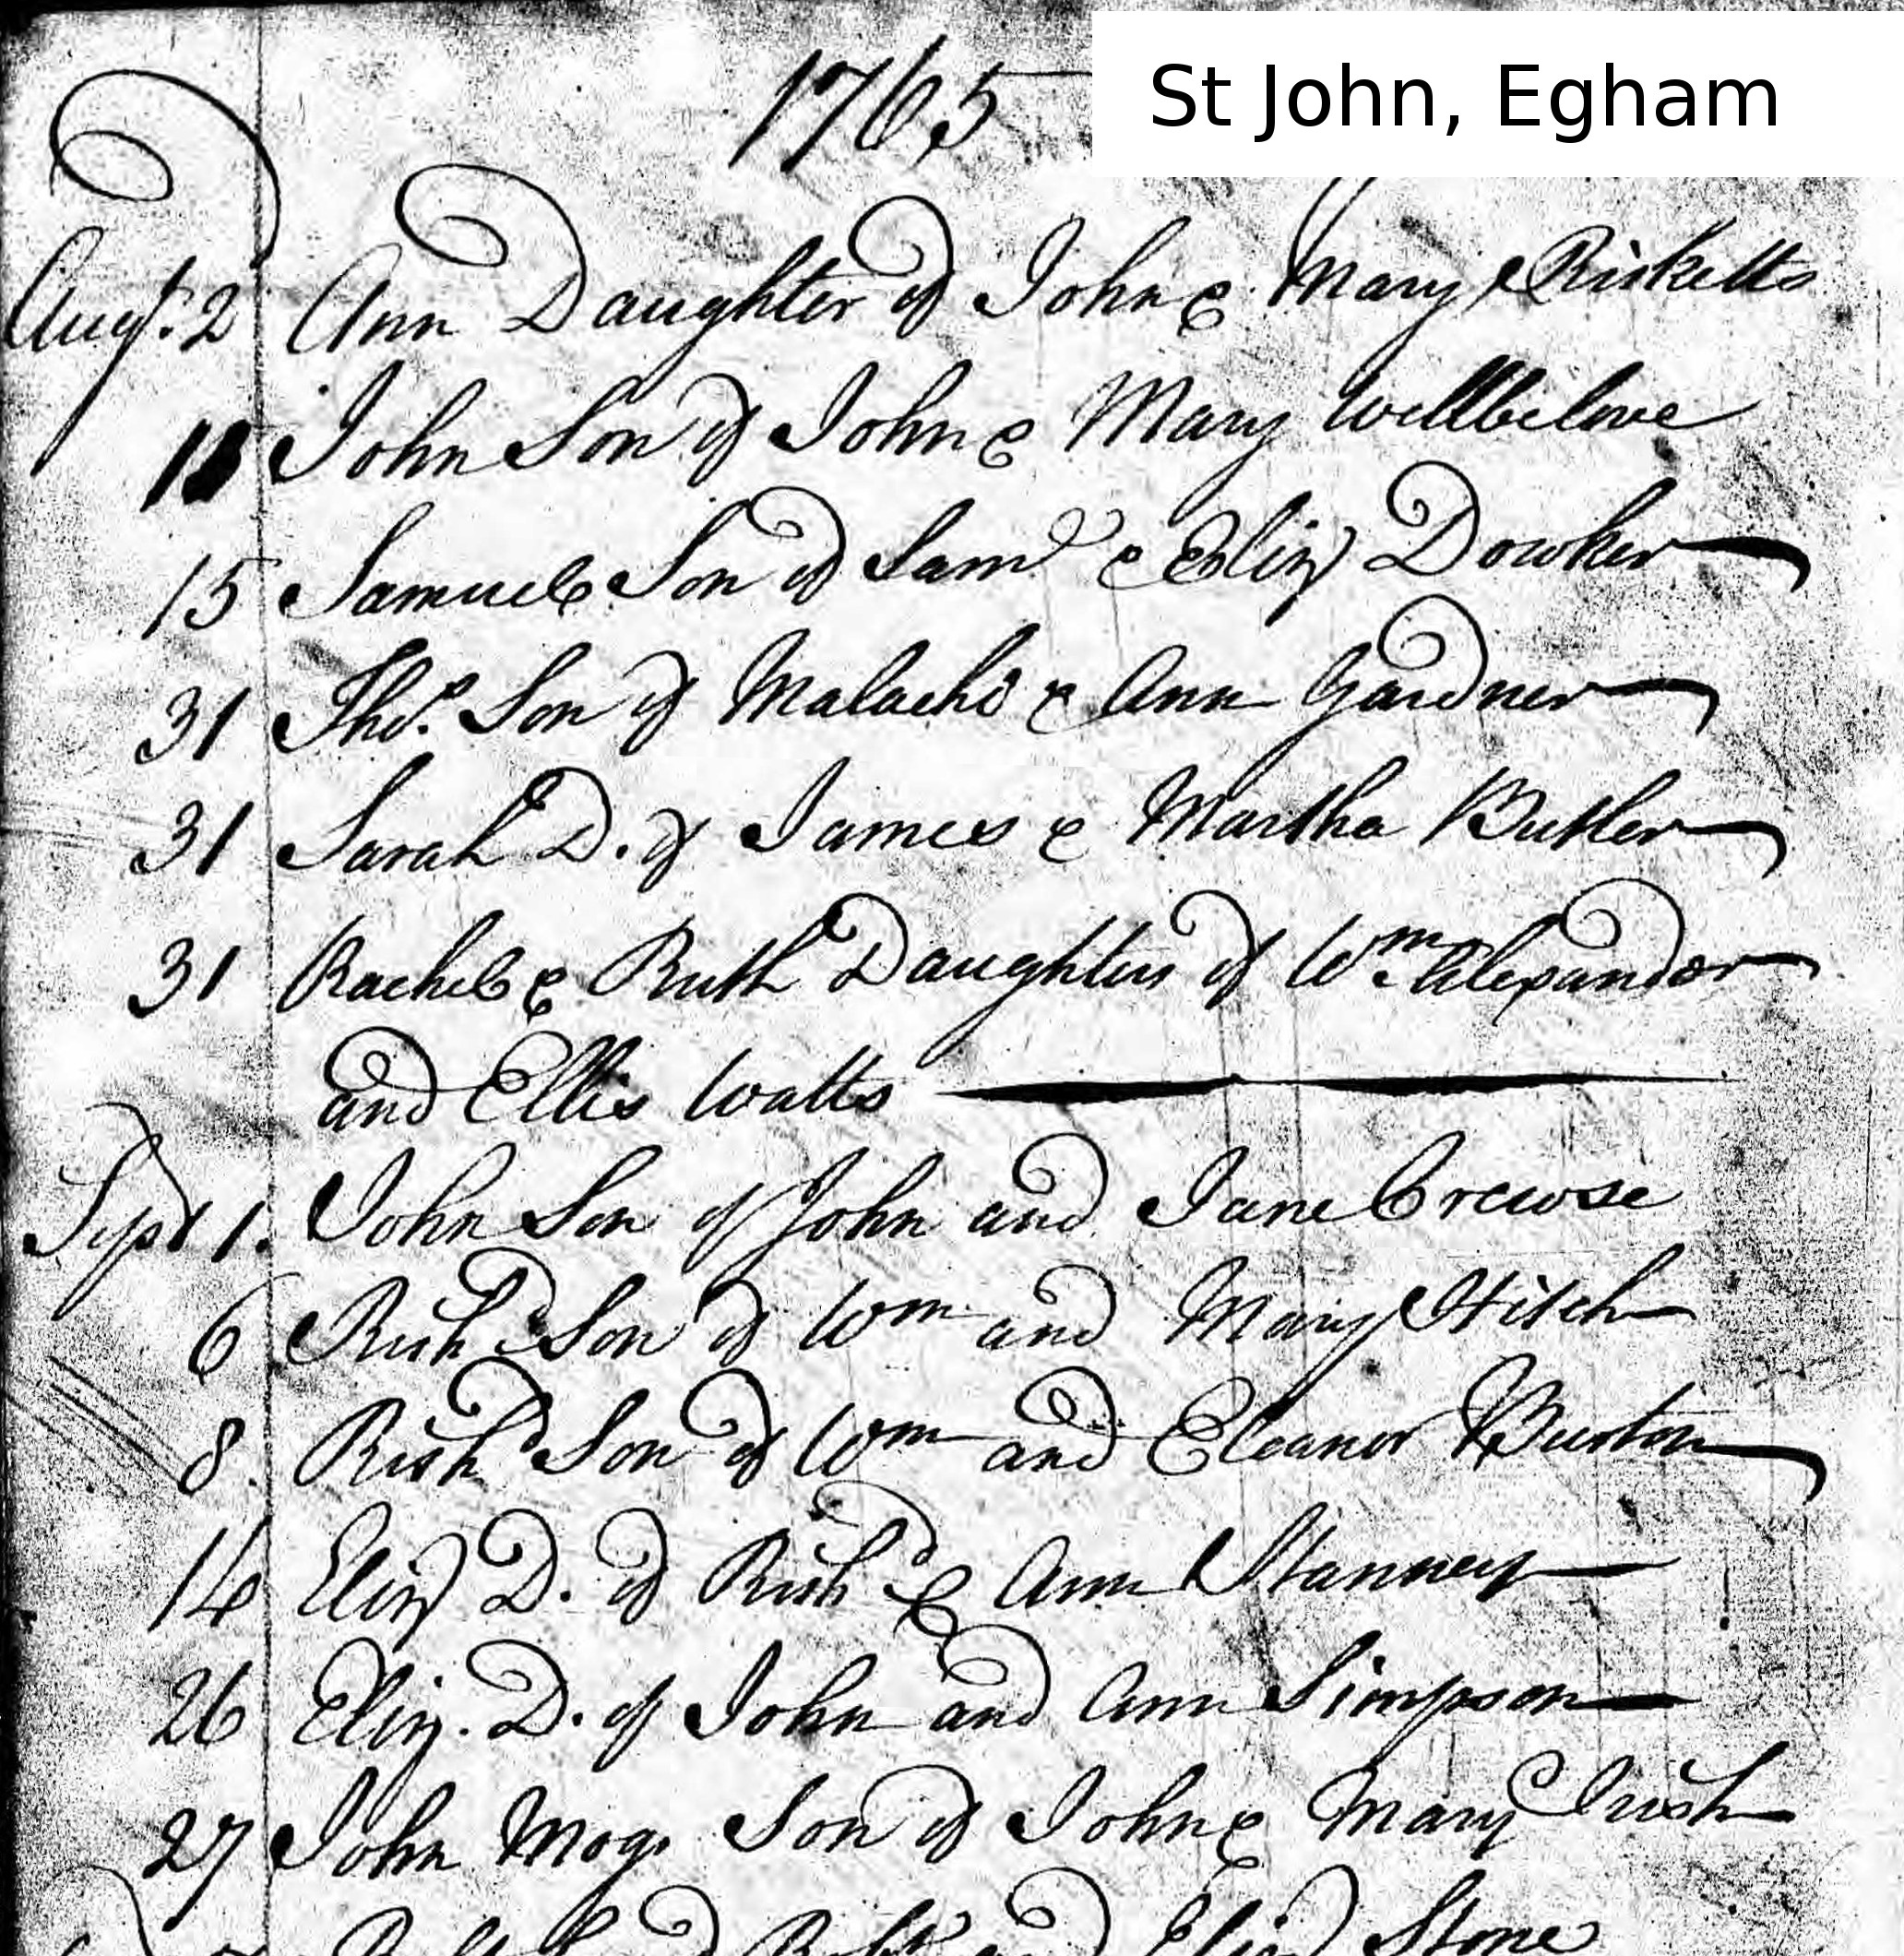 1765
St John, Egham
Augt. 2 Ann Daughter of John & Mary Risketts
John Son of John & Mary Wellbelove
15 Samuel Son of Saml & Eliz Dowker
31 Tho.s Son of Malachi & Ann Gardner
31 Sarah D. of James & Martha Butler
31 Rachel & Ruth Daughters of Wm Alexander
and Ellis Watts
Sept 1. John Son of John and Jane Crewse
6 Richd Son of Wm and Mary Hitch
8. Richd Son of Wm and Eleanor Burton
14 Eliz D. of Richd & Ann Stanney
26 Eliz. D. of John and Ann Simpson
27 John Mog. Son of John & Mary Irish
Robt and Eliz Stone